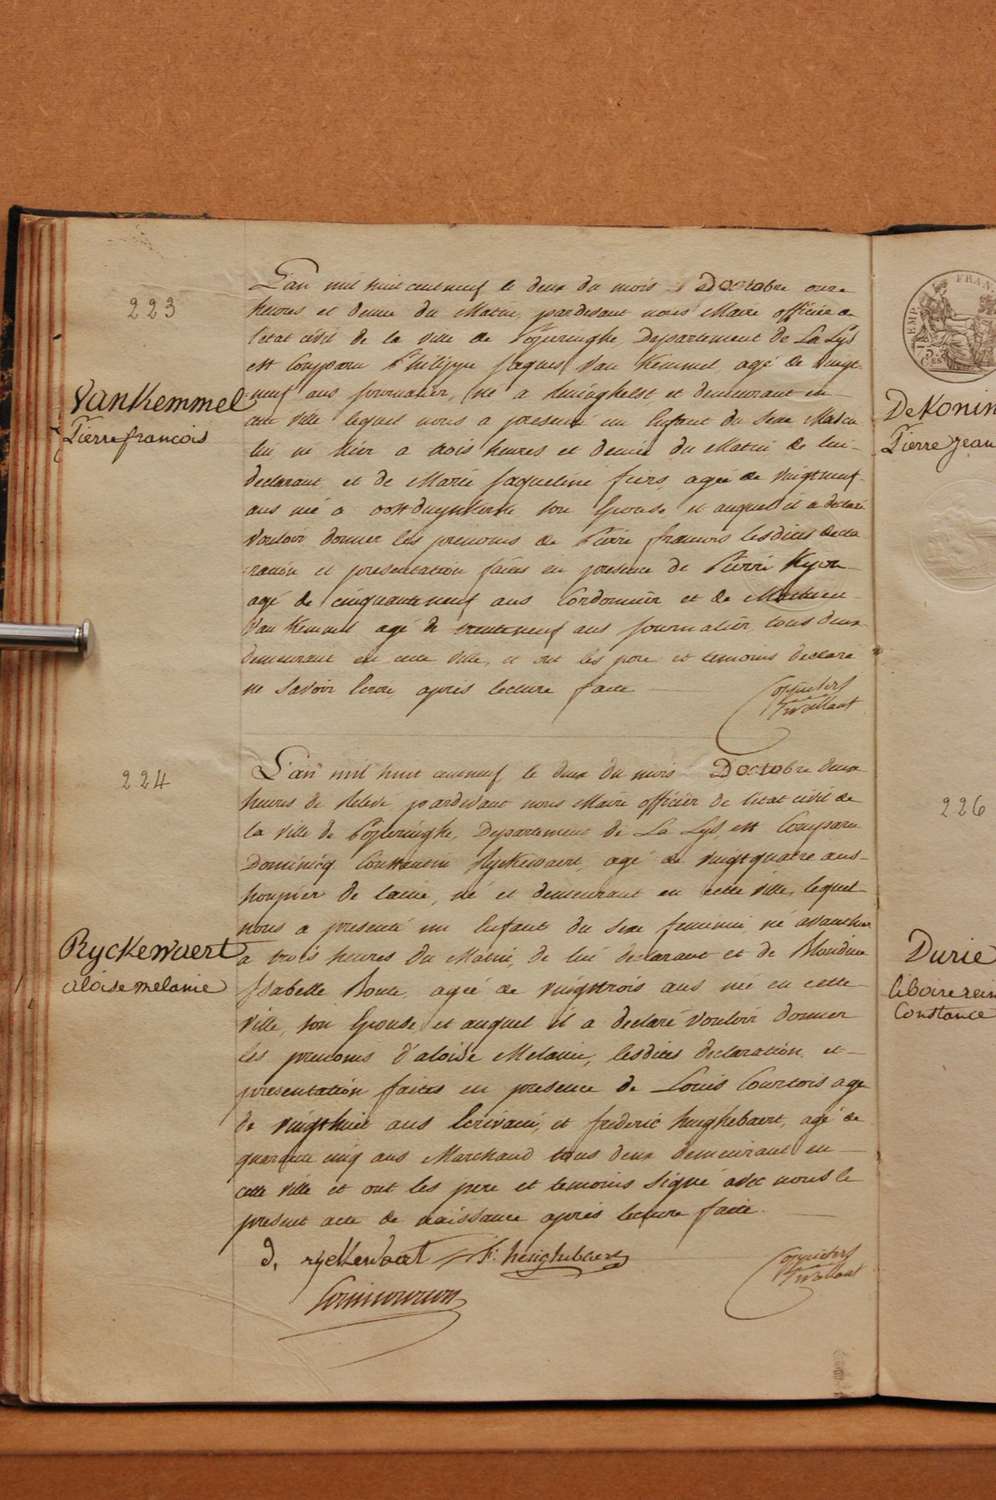 223
VanKemmel
Pierre francois
L'an mil huit cent neuf le deux du mois D'octobre onze
heures et demie du Matin, pardevant nous Maire officier de
l'etat civil de la ville de Poperinghe Departement de La Lys
est Comparu Philippe Jaques Van Kemmel, agé de vingt
neuf ans journalier, né a Reninghelst et demeurant en
cette ville lequel nous a presenté un Enfant du Sexe Mascu
lin né hier a trois heures et demie du Matin de lui
declarant et de Marie Jaqueline fiers, agée de vingt neuf
ans née a oostduynkerke son Epouse et auquel il a declaré
vouloir donner les prenoms de Pierre francois lesdites decla
ration et presentation faites en presence de Pierre
agé de cinquante neuf ans Cordonnier et de Mathieu
Van Kemmel agé de trente neuf ans journalier tous deux
demeurant en cette ville, et ont les pere et temoins declaré
ne savoir Ecrire après lecture faite
224
Ryckewaert
aloise melanie
L'an mil huit cent neuf le deux du mois D'octobre deux
heures de Relevé, pardevant nous Maire officier de l'etat civil de
la ville de Poperinghe, Departement de La Lys est Comparu
Dominicq Constantin Ryckewaert, agé de vingt quatre ans
houpier de laine, né et demeurant en cette ville, lequel
nous a presenté un Enfant du Sexe feminin, né avant hier
a trois heures du Matin, de lui declarant et de Blondine
Isabelle Boute, agée de vingt trois ans née en cette
ville, son Epouse et auquel il a declaré vouloir donner
les prenoms d'aloise Melanie, lesdites declaration et
presentation faites en presence de Louis Courtois agé
de vingt huit ans Ecrivain, et frederic huighebaert, agé de
quarante cinq ans Marchand tous deux demeurant en
cette ville et ont les pere et temoins signé avec nous le
present acte de naissance après lecture faite.
d, ryckewaert F: huighebaert
DeKonin
Pierre jean
226
Durie
Constance